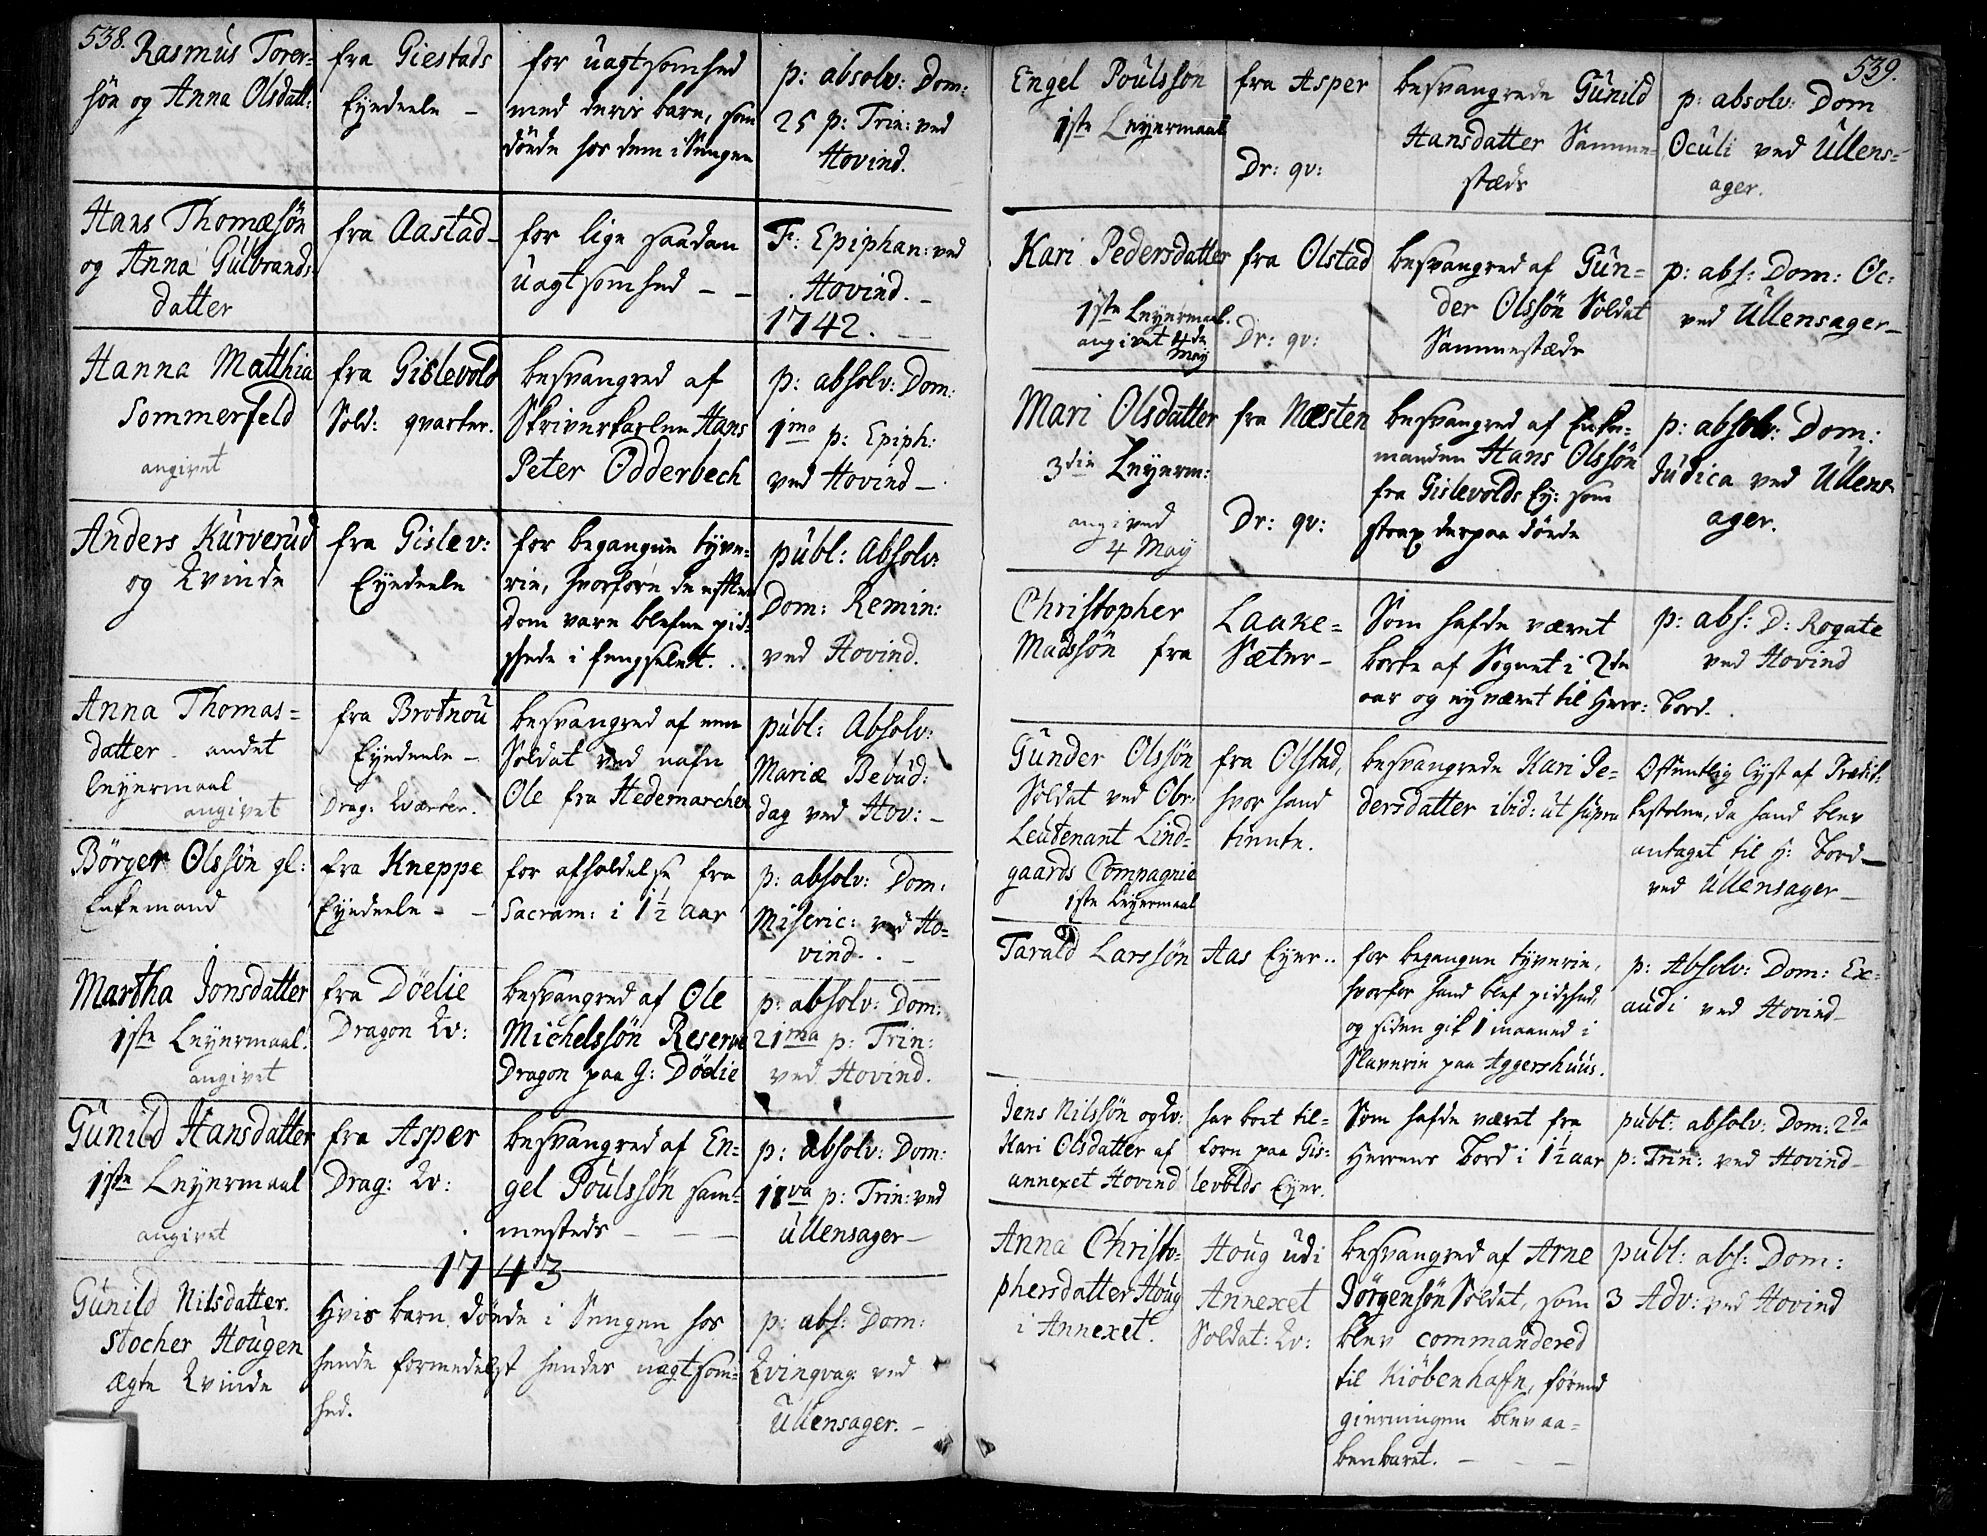 538.
Rasmus Torer=
søn og Anna Olsdatt:
fra Giestads
Eyedeele –
for uagtsomhed
med deris barn, som
døede hos dem i Sengen
p: absolv: Dom:
25 p: Trin: ved
Hovind.
Hans Thomæsøn
og Anna Gulbrands
datter
fra Aastad –
for lige saadan
uagtsomhed – –
F: Epiphan: ved
Hovind. –
1742. – –
Hanna Matthia
Sommerfeld
angivet
fra Gislevold
Sold: qvarter.
besvangred af
Skriverkarlen Hans
Peter Odderbech
p: absolv: Dom:
1mo p: Epiph:
ved Hovind –
Anders Kurverud
og Qvinde
fra Gislev:
Eyedeele
for begangne tyve=
rie, hvorfore de efter
Dom vare blefne pid=
skede i fengselet.
publ: Absolv:
Dom: Remin:
ved Hovind.
Anna Thomas=
datter andet
Leyermaal
angivet
fra Brotnou
Eyedeele –
Drag: Qvarter.
besvangred af een
Soldat ved nafn
Ole fra Hedemarchen
publ: Absolv:
Mariæ Bebud:
dag ved Hov: –
Børger Olssøn gl:
Enkemand
fra Kneppe
Eyedeele – –
for afholdelse fra
Sacram: i 1½ Aar
p: absolv: Dom:
Miseric: ved Ho=
vind. . –
Martha Jonsdatter
1ste Leyermaal.
angivet
fra Døelie
Dragon Qv:
besvangred af Ole
Michelssøn Reserve
Dragon paa G: Dødie
p: absolv: Dom:
21ma p: Trin:
ved Hovind.
Gunild Hansdatter
1ste Leyermaal
angivet
fra Asper
Drag: Qv:
besvangred af En=
gel Poulssøn sam=
mesteds – – –
p: absolv: Dom:
18va p: Trin: ved
Ullensager –
1743
Gunild Nilsdatter.
Stocher Hougen
ægte Qvinde
Hvis barn døede i Sengen hos
hende formedelst hendes uagtsom=
hed.
p: abs: Dom:
Qvinqvag ved
Ullensager. –
539.
Engel Poulssøn
1ste Leyermaal
fra Asper
Dr: qv:
besvangrede Gunild
Hansdatter Samme=
stæds
p: absolv: Dom
Oculi ved Ullens=
ager.
Kari Pedersdatter
1ste Leyermaal.
angivet 4de
May
fra Olstad
Dr: qv:
besvangred af Gun=
der Olssøn Soldat
Sammestæds
p: abs: Dom: Oc:
ved Ullensager –
Mari Olsdatter
3die Leyerm:
angived
4 May
fra Næsten
Dr: qv:
besvangred af Enke=
manden Hans Olssøn
fra Gislevolds Ey: som
strax derpaa døede
p: absolv: Dom:
Judica ved Ullens
ager.
Christopher
Madssøn fra
Laake=
Sæter –
Som hafde været
borte af Sognet i 2de
aar og ey været til Herr: bord.
p: abs: D: Rogate
ved Hovind
Gunder Olssøn
Soldat ved Obr:
Leutenant Lind=
gaards Compagnie
1ste Leyermaal
fra Olstad,
hvor hand
tiente.
besvangrede Kari Pe=
dersdatter ibid: ut supra
Offentlig lyst af Prædik:
kestolen, da hand blev
antaget til H: bord –
ved Ullensager –
Tarald Larssøn
Aas Eyer..
for begangen tyverie,
hvorfor hand blef pidsked,
og siden gik 1 maaned i
Slaverie paa Aggershuus.
p: Absolv: Dom: Ex=
audi ved Hovind –
Jens Nilssøn og Qv:
Kari Olsdatter af
annexet Hovind
har boet til=
forn paa Gis=
levolds Eyer.
Som hafde været fra
Herrens bord i 1½ aar
publ: absolv: Dom: 2da
p: Trin: ved Hovind –
Anna Christo=
phersdatter Houg
i Annexet.
Houg udi
Annexet
Soldat: Qv:
besvangred af Arne
Jørgensøn Soldat, som
blev commandered
til Kiøbenhafn, førend
gierningen blev aa=
benbaret. – – –
publ: abs: Dom:
3 Adv: ved Hovind